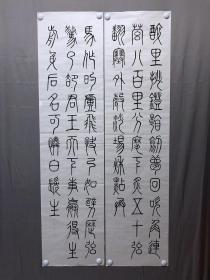 醉里挑鐙看劍夢回吹角連
營八百里分麾下炙五十弦
翻塞外聲沙場秋點兵
馬作的盧飛快弓如劈歷弦
驚了卻君王天下事贏得生
前身后名可憐白髮生